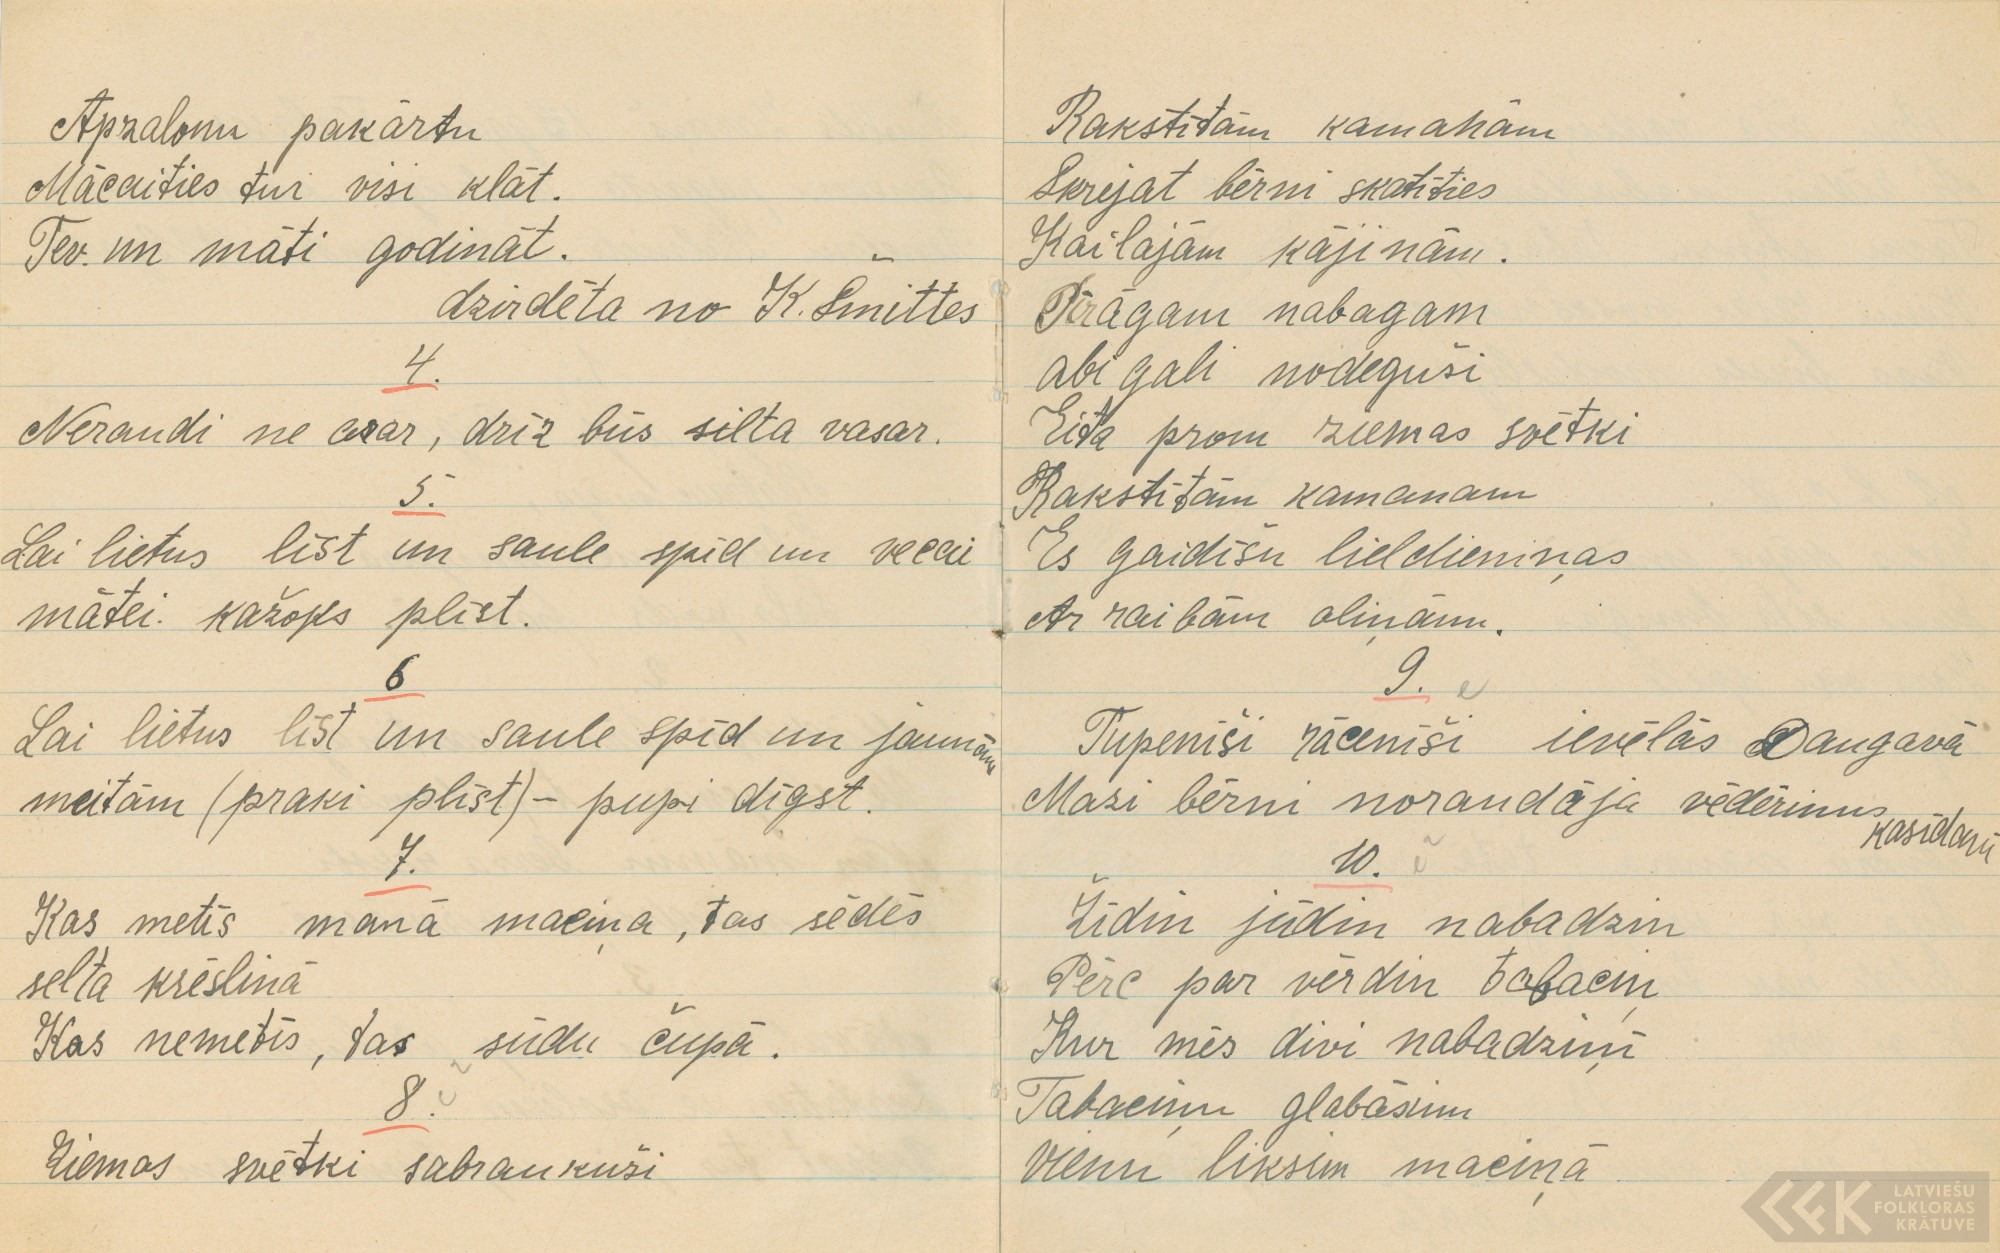 Apzalonu pakārtu
Mācaities tur visi klāt.
Tev. un māti godināt.
dzirdēta no K. Šmittes
4.
Nerandi ne asar, drīz būs silta vasar.
5.
Lai lietus līst un saule spīd un vecai
mātei. kažoks plīst.
6
Lai lietus līst un saule spīd un jaunām
meitām (praki plīst) - pupi dīgst.
7.
Kas metīs manā maciņa, tas sēdēs
selta krēslinā
Kas nemetīs, tas sūdu čupā.
8.
Ziemas svētki sabraukuši
Rakstītām kamanām
Skrejat bērni skatīties
Kailajām kājinām.
Pīrāgam nabagam
abi gali nodeguši
Eita prom ziemas svētki
Rakstītām kamanam
Es gaidīšu lieldieniņas
Ar raibām oliņām.
9.
Tupenīši rācenīši ievēlās Daugavā
Mazi bērni noraudāja vēdērinus
kasīdami
10.
Žīdin jūdin nabadzin
Pērc par vērdin tabaciņ
Kur mēs divi nabadziņi
Tabaciņu glabāsim
Vienu liksim maciņā
LATVIEŠU
FOLKLORAS
KRĀTUVE